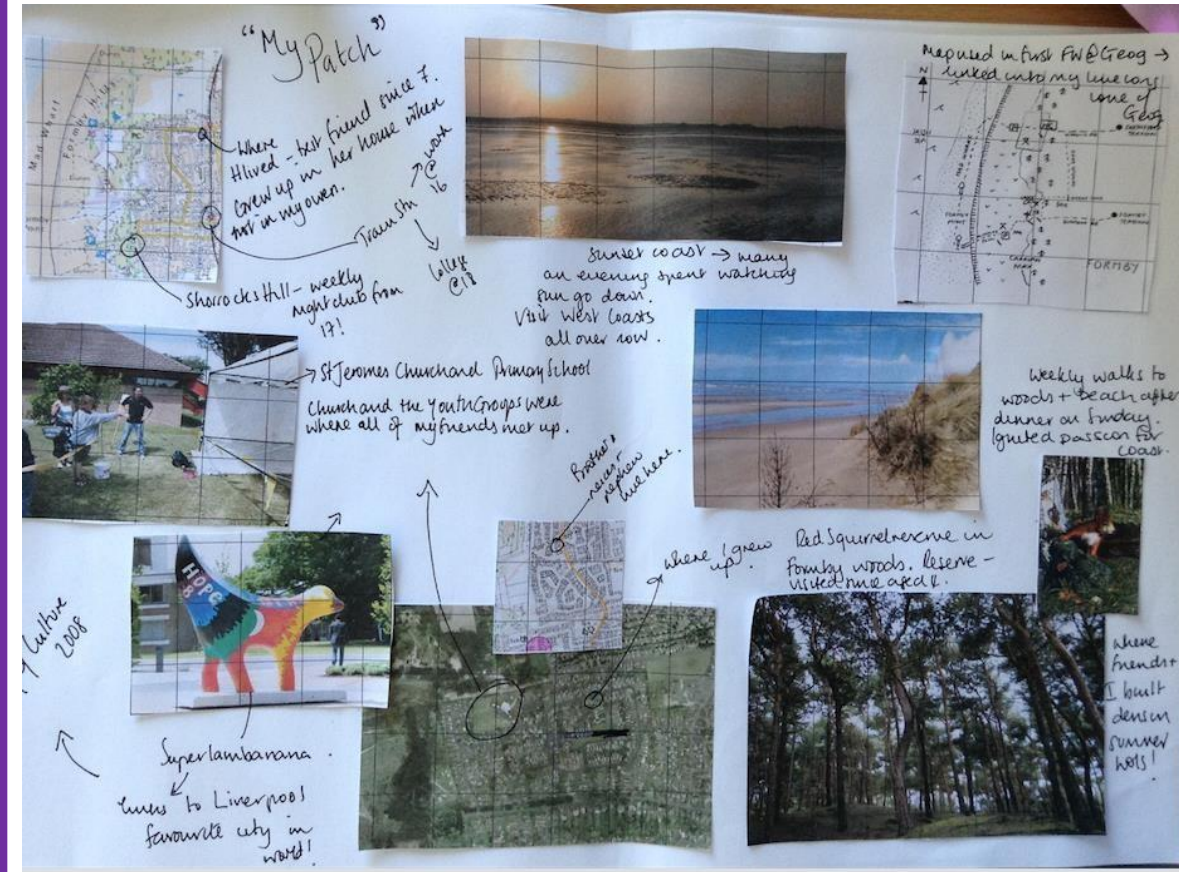 "My
Patch"
Where
H lived - best friend since 7.
Grew up in her house when
not in my own.
Train Stn
work
@
16
College
@18
Shorrocks Hill - weekly
nightclub from
17!
Mad Wharf
Formby Hills
Sunset coast → many
an evening spent watching
sun go down.
Visit West Coasts
all over now.
Map used in first FW @ Geog →
linked into my live long
love of
Geog
N
FORMBY
St Jeromes Church and Primary School
Church and the Youth Groups were
where all of my friends met up.
Weekly walks to
woods + beach after
dinner on Sunday.
Ignited passion for
coast.
Brother +
nephew
live here.
where I grew
up.
Red Squirrel reserve in
Formby woods. Reserve -
visited since aged 4.
where
friends +
I built
dens in
summer
hols!
HOPE
08
Culture
2008
Superlambanana
links to Liverpool
favourite city in
world!